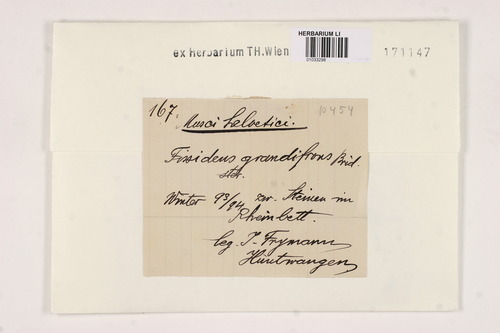 HERBARIUM LI
01033298
ex Herbarium TH.Wien
171147
167.
Musci helvetici.
Fissidens grandifrons Brid.
ster.
Winter 93/94 zw. Steinen im
Rheinbett.
leg. J. Frymann
Hüntwangen